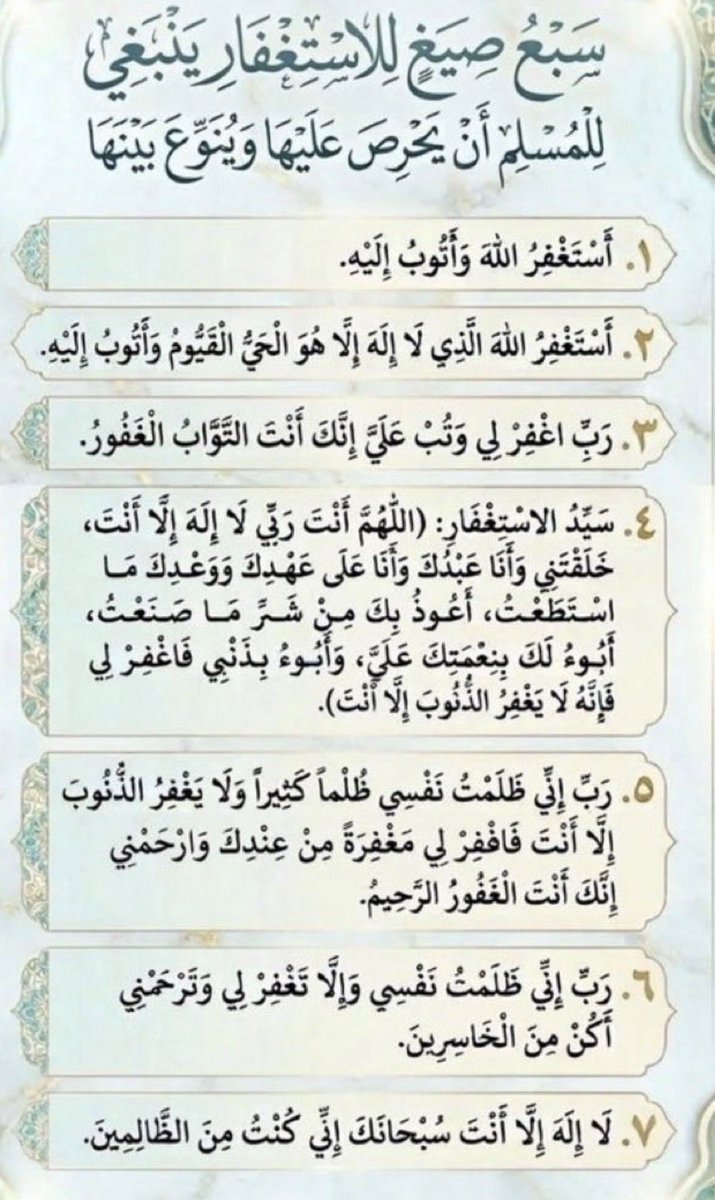 سَبْعُ صِيَغٍ لِلِاسْتِغْفَارِ يَنْبَغِي
لِلْمُسْلِمِ أَنْ يَحْرِصَ عَلَيْهَا وَيُنَوِّعَ بَيْنَهَا
١. أَسْتَغْفِرُ اللهَ وَأَتُوبُ إِلَيْهِ.
٢. أَسْتَغْفِرُ اللهَ الَّذِي لَا إِلَهَ إِلَّا هُوَ الْحَيُّ الْقَيُّومُ وَأَتُوبُ إِلَيْهِ.
٣. رَبِّ اغْفِرْ لِي وَتُبْ عَلَيَّ إِنَّكَ أَنْتَ التَّوَّابُ الْغَفُورُ.
٤. سَيِّدُ الاسْتِغْفَارِ: (اللَّهُمَّ أَنْتَ رَبِّي لَا إِلَهَ إِلَّا أَنْتَ،
خَلَقْتَنِي وَأَنَا عَبْدُكَ وَأَنَا عَلَى عَهْدِكَ وَوَعْدِكَ مَـا
اسْـتَـطَـعْـتُ، أَعُـوذُ بِكَ مِـنْ شَـرِّ مَـا صَـنَـعْـتُ،
أَبُـوءُ لَكَ بِنِعْمَتِكَ عَلَيَّ، وَأَبُـوءُ بِـذَنْبِي فَاغْفِرْ لِي
فَإِنَّهُ لَا يَغْفِرُ الذُّنُوبَ إِلَّا أَنْتَ).
٥. رَبِّ إِنِّي ظَلَمْتُ نَفْسِي ظُلْماً كَثِيراً وَلَا يَغْفِرُ الذُّنُوبَ
إِلَّا أَنْتَ فَافْفِرْ لِي مَغْفِرَةً مِنْ عِنْدِكَ وَارْحَمْنِي
إِنَّكَ أَنْتَ الْغَفُورُ الرَّحِيمُ.
٦. رَبِّ إِنِّي ظَلَمْتُ نَفْسِي وَإِلَّا تَغْفِرْ لِي وَتَرْحَمْنِي
أَكُنْ مِنَ الْخَاسِرِينَ.
٧. لَا إِلَهَ إِلَّا أَنْتَ سُبْحَانَكَ إِنِّي كُنْتُ مِنَ الظَّالِمِينَ.